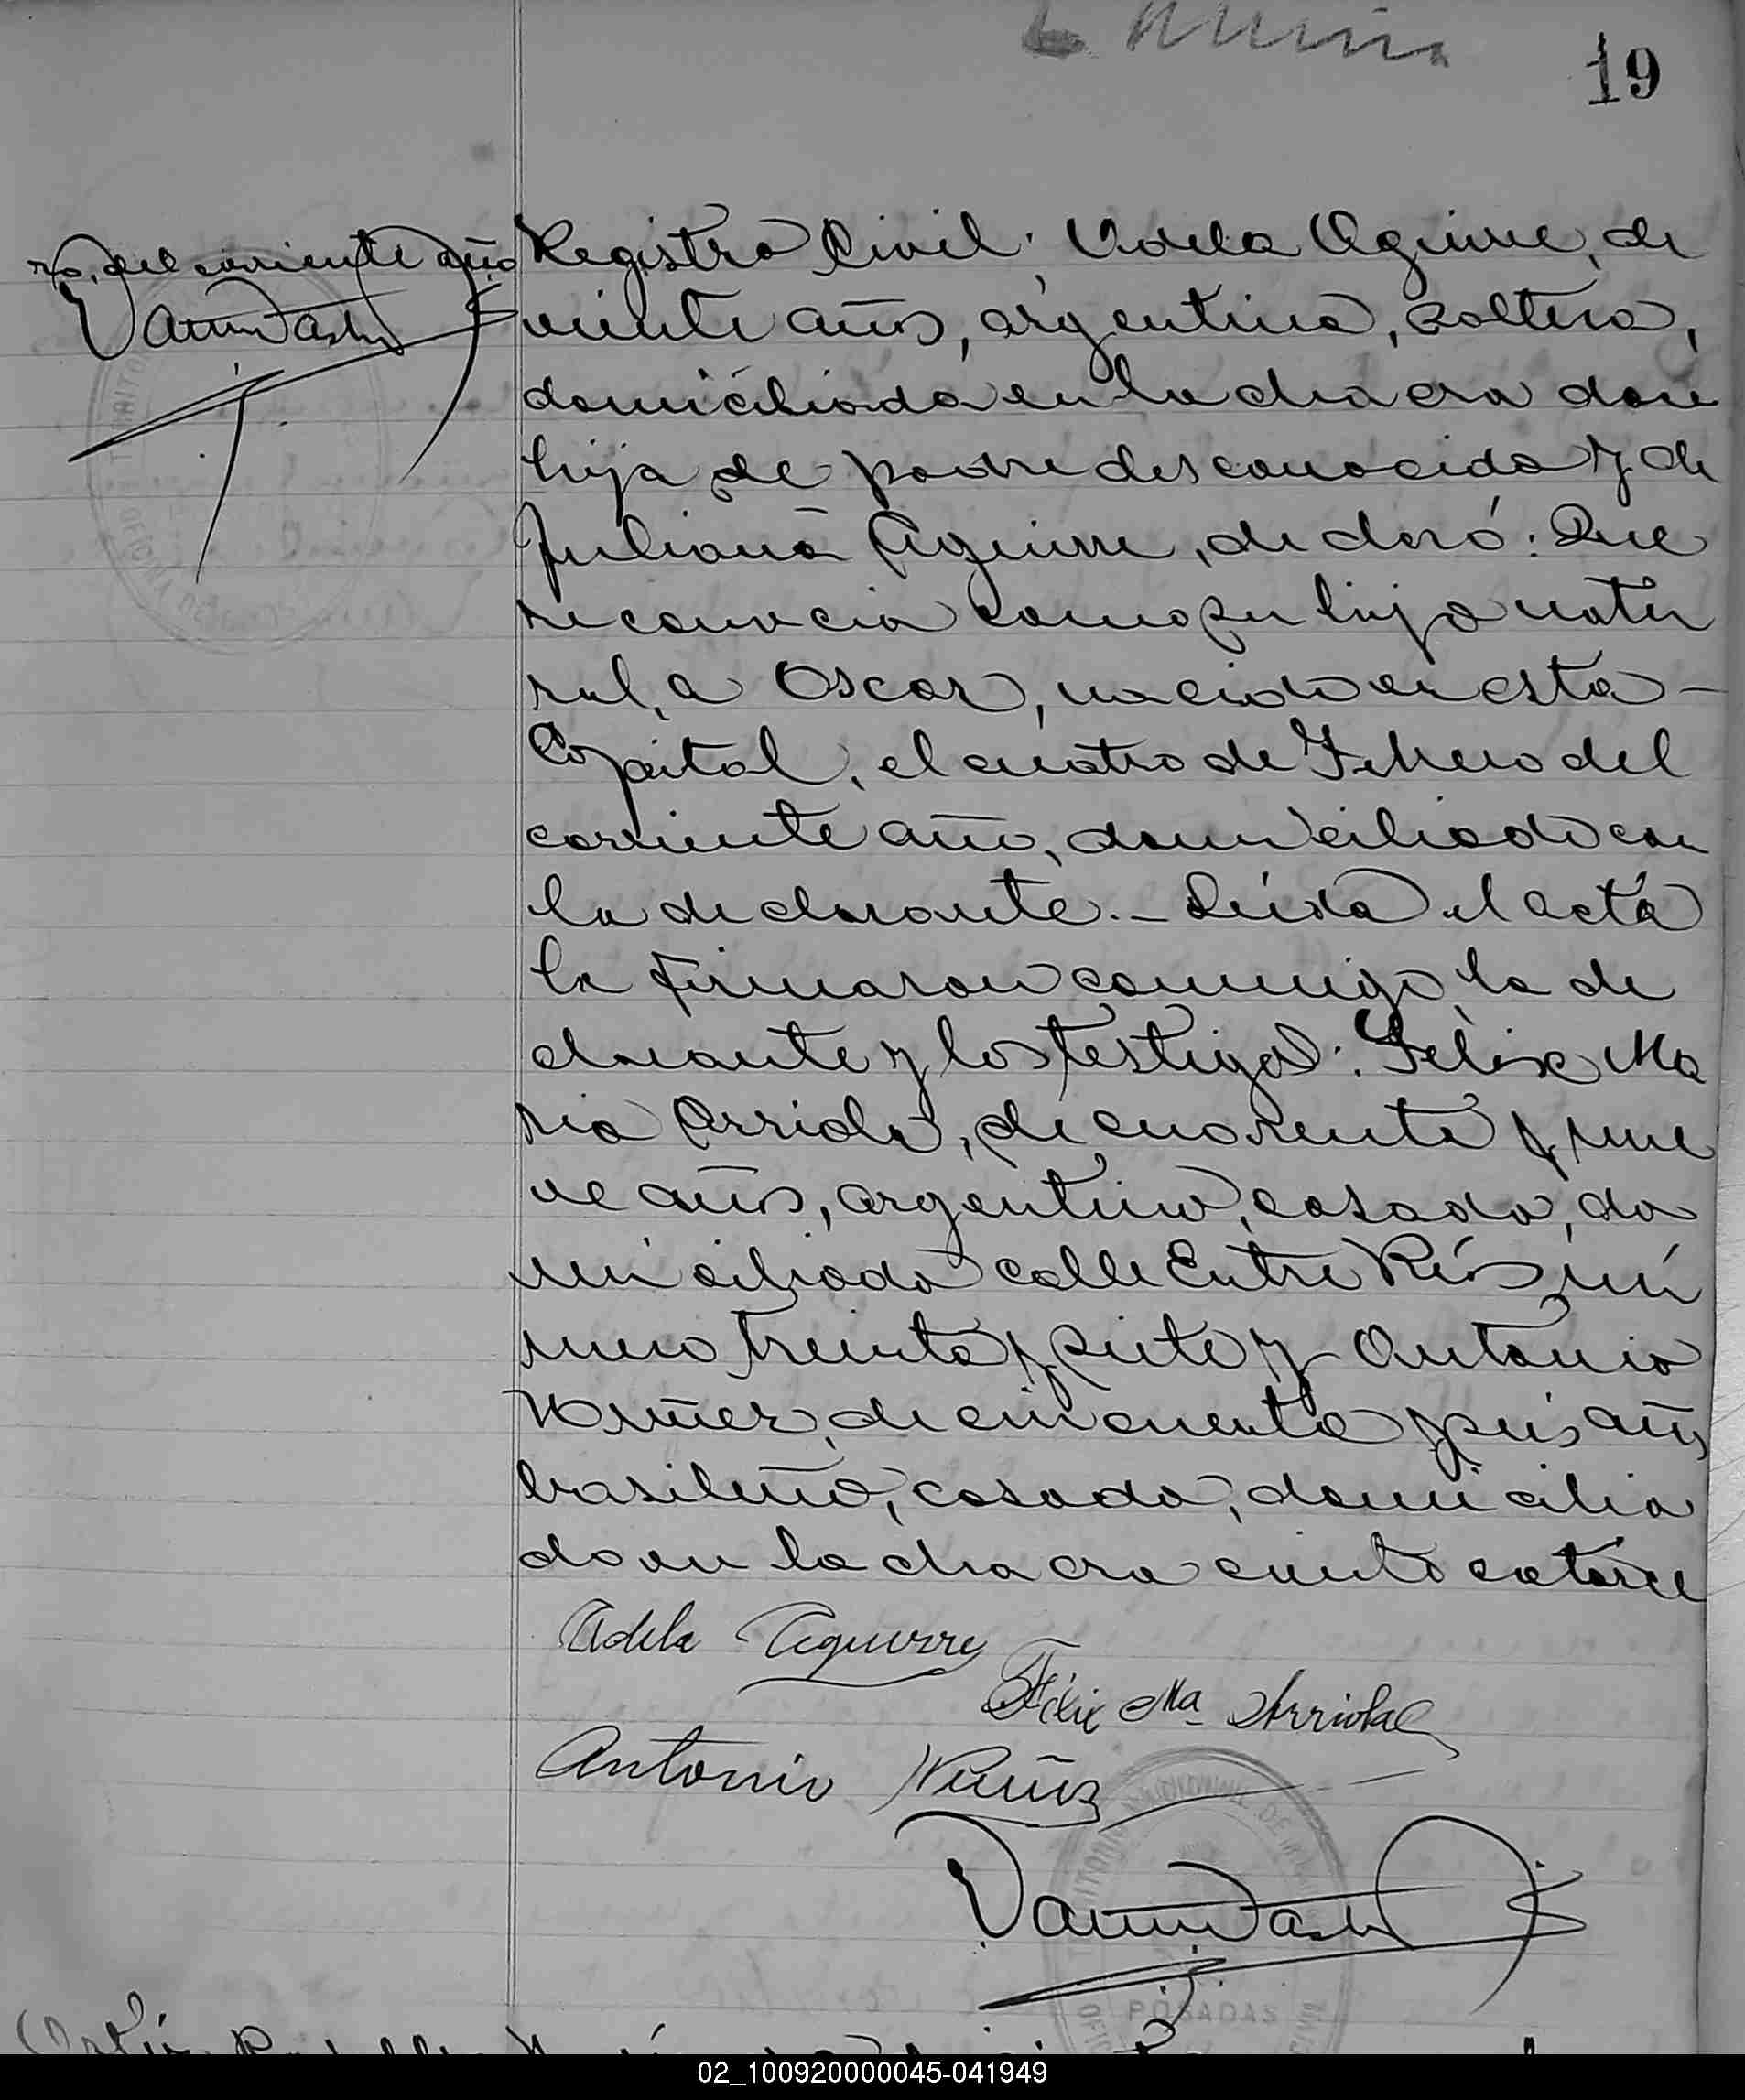 19
ro, del corriente año
Registro Civil; Adela Aguirre, de
veinte años, argentina, soltera,
domiciliada en la chacra doce
hija de padre desconocido y de
Juliana Aguirre, declaró: Que
reconocia como su hijo natu
ral, a Oscar, nacido en esta -
Capital, el cuatro de Febrero del
corriente año, domiciliado con
la declarante.- Leída el acta
la firmaron conmigo, la de
clarante y los testigos: Felix Ma
ria Arriola, de cuarenta y nue
ve años, argentino, casado, do
miciliado calle Entre Ríos nú
mero treinta y siete y Antonio
Nuñez, de cincuenta y seis años,
brasileño, casado, domicilia
do en la chacra ciento catorce
Adela Aguirre
Félix Ma Arriola
Antonio Nuñez
POSADAS
02_100920000045-041949